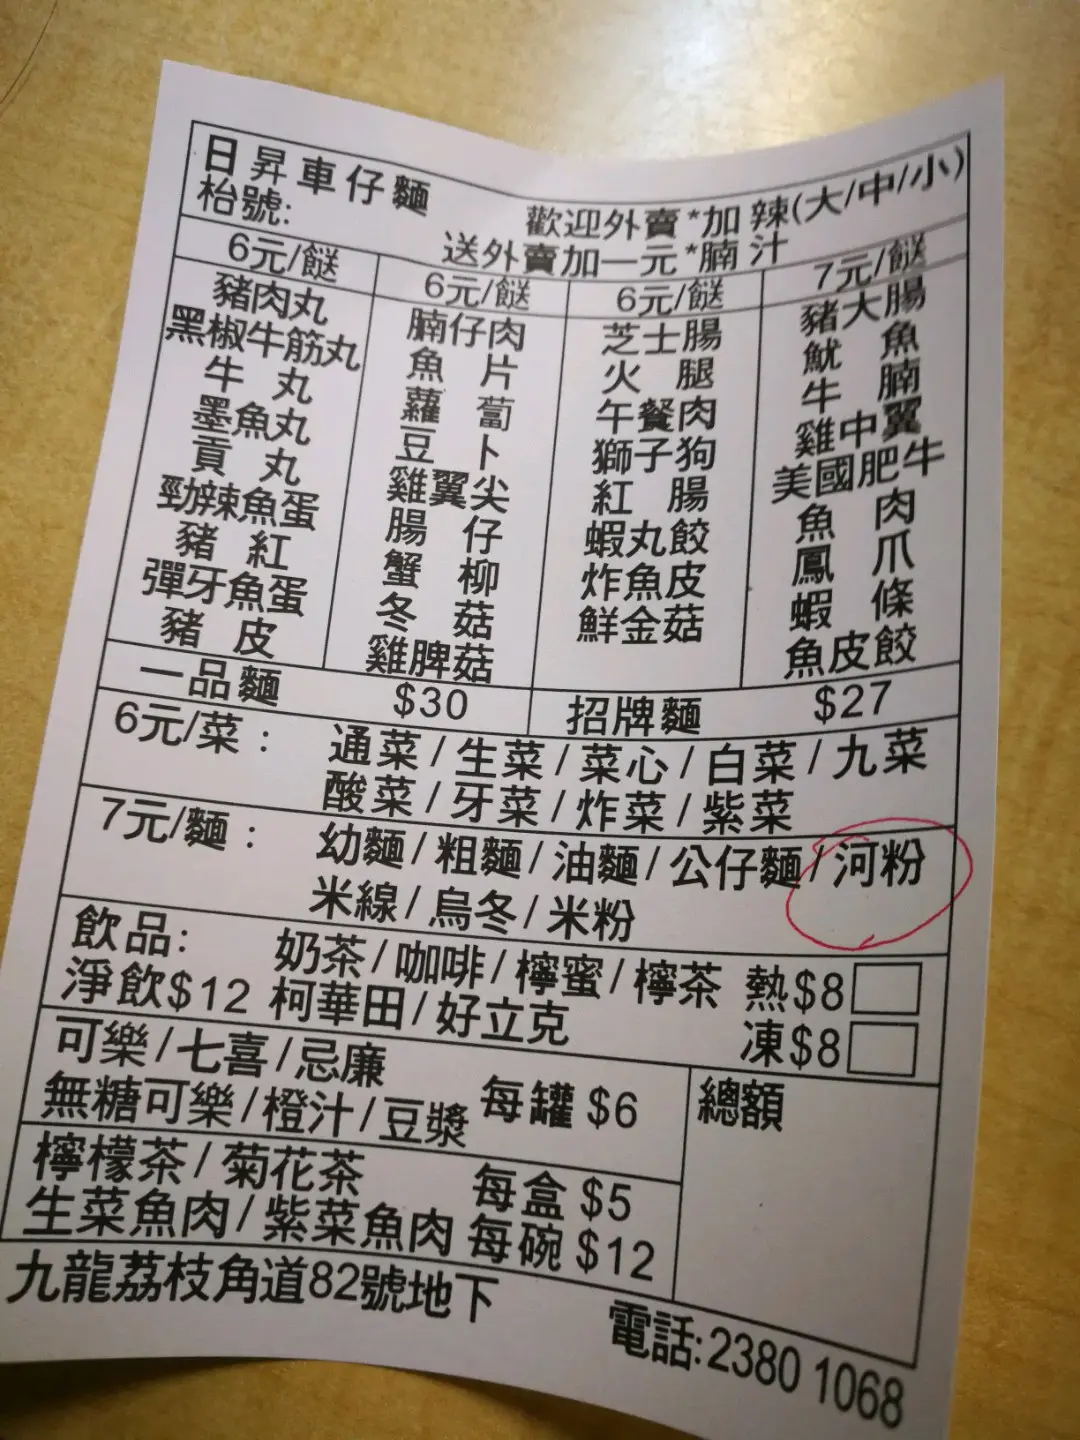 日昇車仔麵
歡迎外賣*加 辣(大/中/小)
枱號:
送外賣加一元*腩 汁
6元/餸
豬肉丸
黑椒牛筋丸
牛 丸
墨魚丸
貢 丸
勁辣魚蛋
豬 紅
彈牙魚蛋
豬 皮
6元/餸
腩仔肉
魚 片
蘿 蔔
豆 卜
雞翼尖
腸 仔
蟹 柳
冬 菇
雞脾菇
6元/餸
芝士腸
火 腿
午餐肉
獅子狗
紅 腸
蝦丸餃
炸魚皮
鮮金菇
7元/餸
豬大腸
魷 魚
牛 腩
雞中翼
美國肥牛
魚 肉
鳳 爪
蝦 條
魚皮餃
一品麵 $30 招牌麵 $27
6元/菜: 通菜/生菜/菜心/白菜/九菜
酸菜/牙菜/炸菜/紫菜
7元/麵: 幼麵/粗麵/油麵/公仔麵/河粉
米線/烏冬/米粉
飲品: 奶茶/咖啡/檸蜜/檸茶 熱$8
淨飲$12 柯華田/好立克 凍$8
可樂/七喜/忌廉
無糖可樂/橙汁/豆漿 每罐 $6
總額
檸檬茶/菊花茶 每盒 $5
生菜魚肉/紫菜魚肉 每碗 $12
九龍荔枝角道82號地下
電話:2380 1068